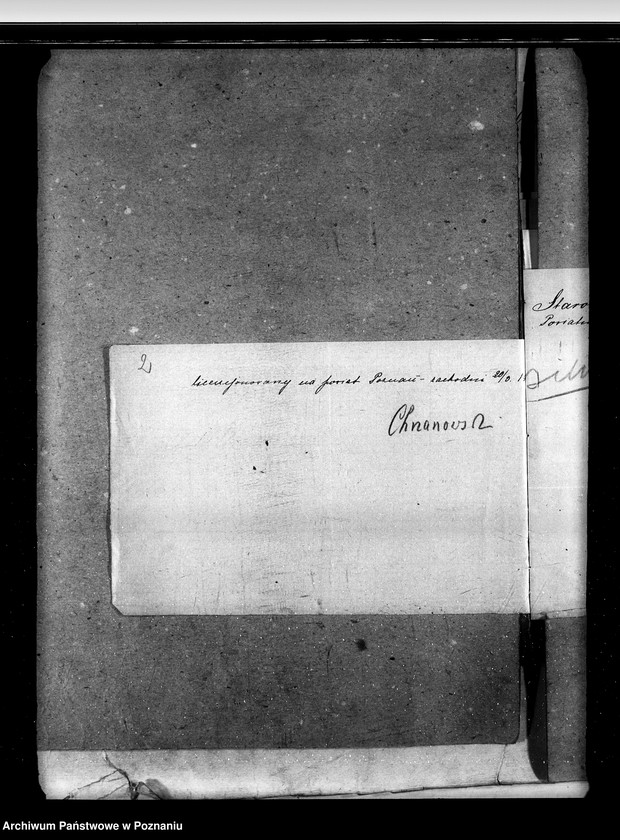 2
licencjonowany na powiat Poznań - zachodni 20/3. 1
Chrzanowski
Staro
Powiatow
Archiwum Państwowe w Poznaniu